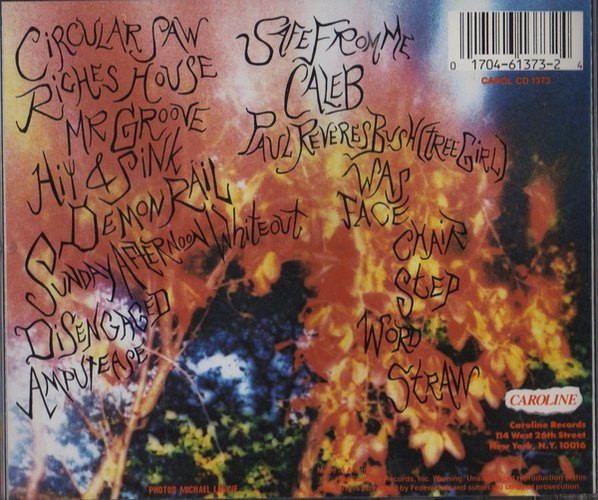 CIRCULAR SAW
RICHES HOUSE
MR GROOVE
HIY 4 SINK
DEMON RAIL
SUNDAY AFTERNOON WHITEOUT
DISENGAGED
AMPUTEASE
SAFE FROM ME
CALEB
PAUL REVERES BUSH (TREE GIRL)
WAS
FACE
CHAIR
STEP
WORD
STRAW
0 1704-61373-2 4
CAROL CD 1373
CAROLINE
Caroline Records
114 West 26th Street
New York, N.Y. 10016
Records, Inc. Warning: reproduction of this
by Federal and subject to criminal prosecution.
PHOTOS MICHAEL LAVINE